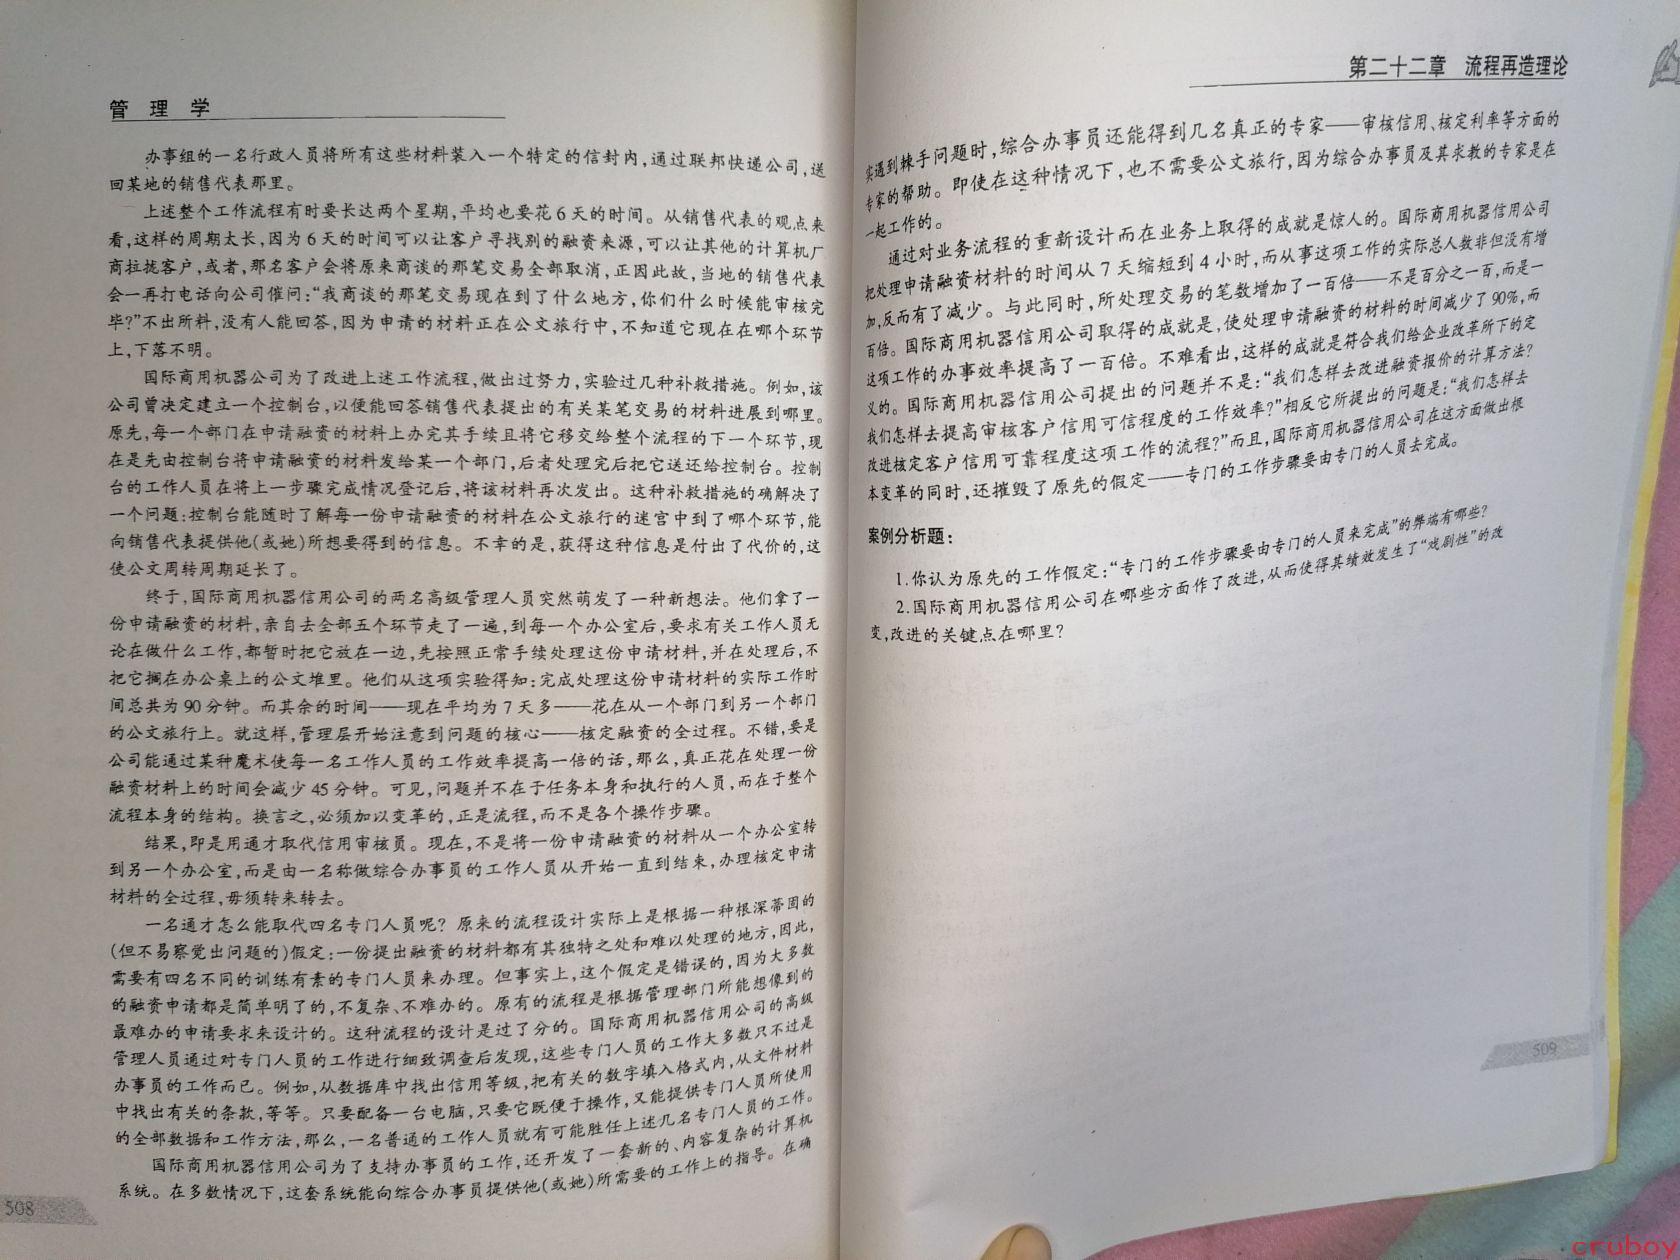 管 理 学
办事组的一名行政人员将所有这些材料装入一个特定的信封内，通过联邦快递公司，送
回某地的销售代表那里。
上述整个工作流程有时要长达两个星期，平均也要花6天的时间。从销售代表的观点来
看，这样的周期太长，因为6天的时间可以让客户寻找别的融资来源，可以让其他的计算机厂
商拉拢客户，或者，那名客户会将原来商谈的那笔交易全部取消，正因此故，当地的销售代表
会一再打电话向公司催问：“我商谈的那笔交易现在到了什么地方，你们什么时候能审核完
毕？”不出所料，没有人能回答，因为申请的材料正在公文旅行中，不知道它现在在哪个环节
上，下落不明。
国际商用机器公司为了改进上述工作流程，做出过努力，实验过几种补救措施。例如，该
公司曾决定建立一个控制台，以便能回答销售代表提出的有关某笔交易的材料进展到哪里。
原先，每一个部门在申请融资的材料上办完其手续且将它移交给整个流程的下一个环节，现
在是先由控制台将申请融资的材料发给某一个部门，后者处理完后把它送还给控制台。控制
台的工作人员在将上一步骤完成情况登记后，将该材料再次发出。这种补救措施的确解决了
一个问题：控制台能随时了解每一份申请融资的材料在公文旅行的迷宫中到了哪个环节，能
向销售代表提供他（或她）所想要得到的信息。不幸的是，获得这种信息是付出了代价的，这
使公文周转周期延长了。
终于，国际商用机器信用公司的两名高级管理人员突然萌发了一种新想法。他们拿了一
份申请融资的材料，亲自去全部五个环节走了一遍，到每一个办公室后，要求有关工作人员无
论在做什么工作，都暂时把它放在一边，先按照正常手续处理这份申请材料，并在处理后，不
把它搁在办公桌上的公文堆里。他们从这项实验得知：完成处理这份申请材料的实际工作时
间总共为90分钟。而其余的时间——现在平均为7天多——花在从一个部门到另一个部门
的公文旅行上。就这样，管理层开始注意到问题的核心——核定融资的全过程。不错，要是
公司能通过某种魔术使每一名工作人员的工作效率提高一倍的话，那么，真正花在处理一份
融资材料上的时间会减少45分钟。可见，问题并不在于任务本身和执行的人员，而在于整个
流程本身的结构。换言之，必须加以变革的，正是流程，而不是各个操作步骤。
结果，即是用通才取代信用审核员。现在，不是将一份申请融资的材料从一个办公室转
到另一个办公室，而是由一名称做综合办事员的工作人员从开始一直到结束，办理核定申请
材料的全过程，毋须转来转去。
一名通才怎么能取代四名专门人员呢？原来的流程设计实际上是根据一种根深蒂固的
（但不易察觉出问题的）假定：一份提出融资的材料都有其独特之处和难以处理的地方，因此，
需要有四名不同的训练有素的专门人员来办理。但事实上，这个假定是错误的，因为大多数
的融资申请都是简单明了的，不复杂、不难办的。原有的流程是根据管理部门所能想像到的
最难办的申请要求来设计的。这种流程的设计是过了分的。国际商用机器信用公司的高级
管理人员通过对专门人员的工作进行细致调查后发现，这些专门人员的工作大多数只不过是
办事员的工作而已。例如，从数据库中找出信用等级，把有关的数字填入格式内，从文件材料
中找出有关的条款，等等。只要配备一台电脑，只要它既便于操作，又能提供专门人员所使用
的全部数据和工作方法，那么，一名普通的工作人员就有可能胜任上述几名专门人员的工作。
国际商用机器信用公司为了支持办事员的工作，还开发了一套新的、内容复杂的计算机
系统。在多数情况下，这套系统能向综合办事员提供他（或她）所需要的工作上的指导。在确
508
第二十二章 流程再造理论
实遇到棘手问题时，综合办事员还能得到几名真正的专家——审核信用、核定利率等方面的
专家的帮助。即使在这种情况下，也不需要公文旅行，因为综合办事员及其求教的专家是在
一起工作的。
通过对业务流程的重新设计而在业务上取得的成就是惊人的。国际商用机器信用公司
把处理申请融资材料的时间从7天缩短到4小时，而从事这项工作的实际总人数非但没有增
加，反而有了减少。与此同时，所处理交易的笔数增加了一百倍——不是百分之一百，而是一
百倍。国际商用机器信用公司取得的成就是，使处理申请融资的材料的时间减少了90%，而
这项工作的办事效率提高了一百倍。不难看出，这样的成就是符合我们给企业改革所下的定
义的。国际商用机器信用公司提出的问题并不是：“我们怎样去改进融资报价的计算方法？
我们怎样去提高审核客户信用可信程度的工作效率？”相反它所提出的问题是：“我们怎样去
改进核定客户信用可靠程度这项工作的流程？”而且，国际商用机器信用公司在这方面做出根
本变革的同时，还摧毁了原先的假定——专门的工作步骤要由专门的人员去完成。
案例分析题：
1.你认为原先的工作假定：“专门的工作步骤要由专门的人员来完成”的弊端有哪些？
2.国际商用机器信用公司在哪些方面作了改进，从而使得其绩效发生了“戏剧性”的改
变，改进的关键点在哪里？
509
cruboy